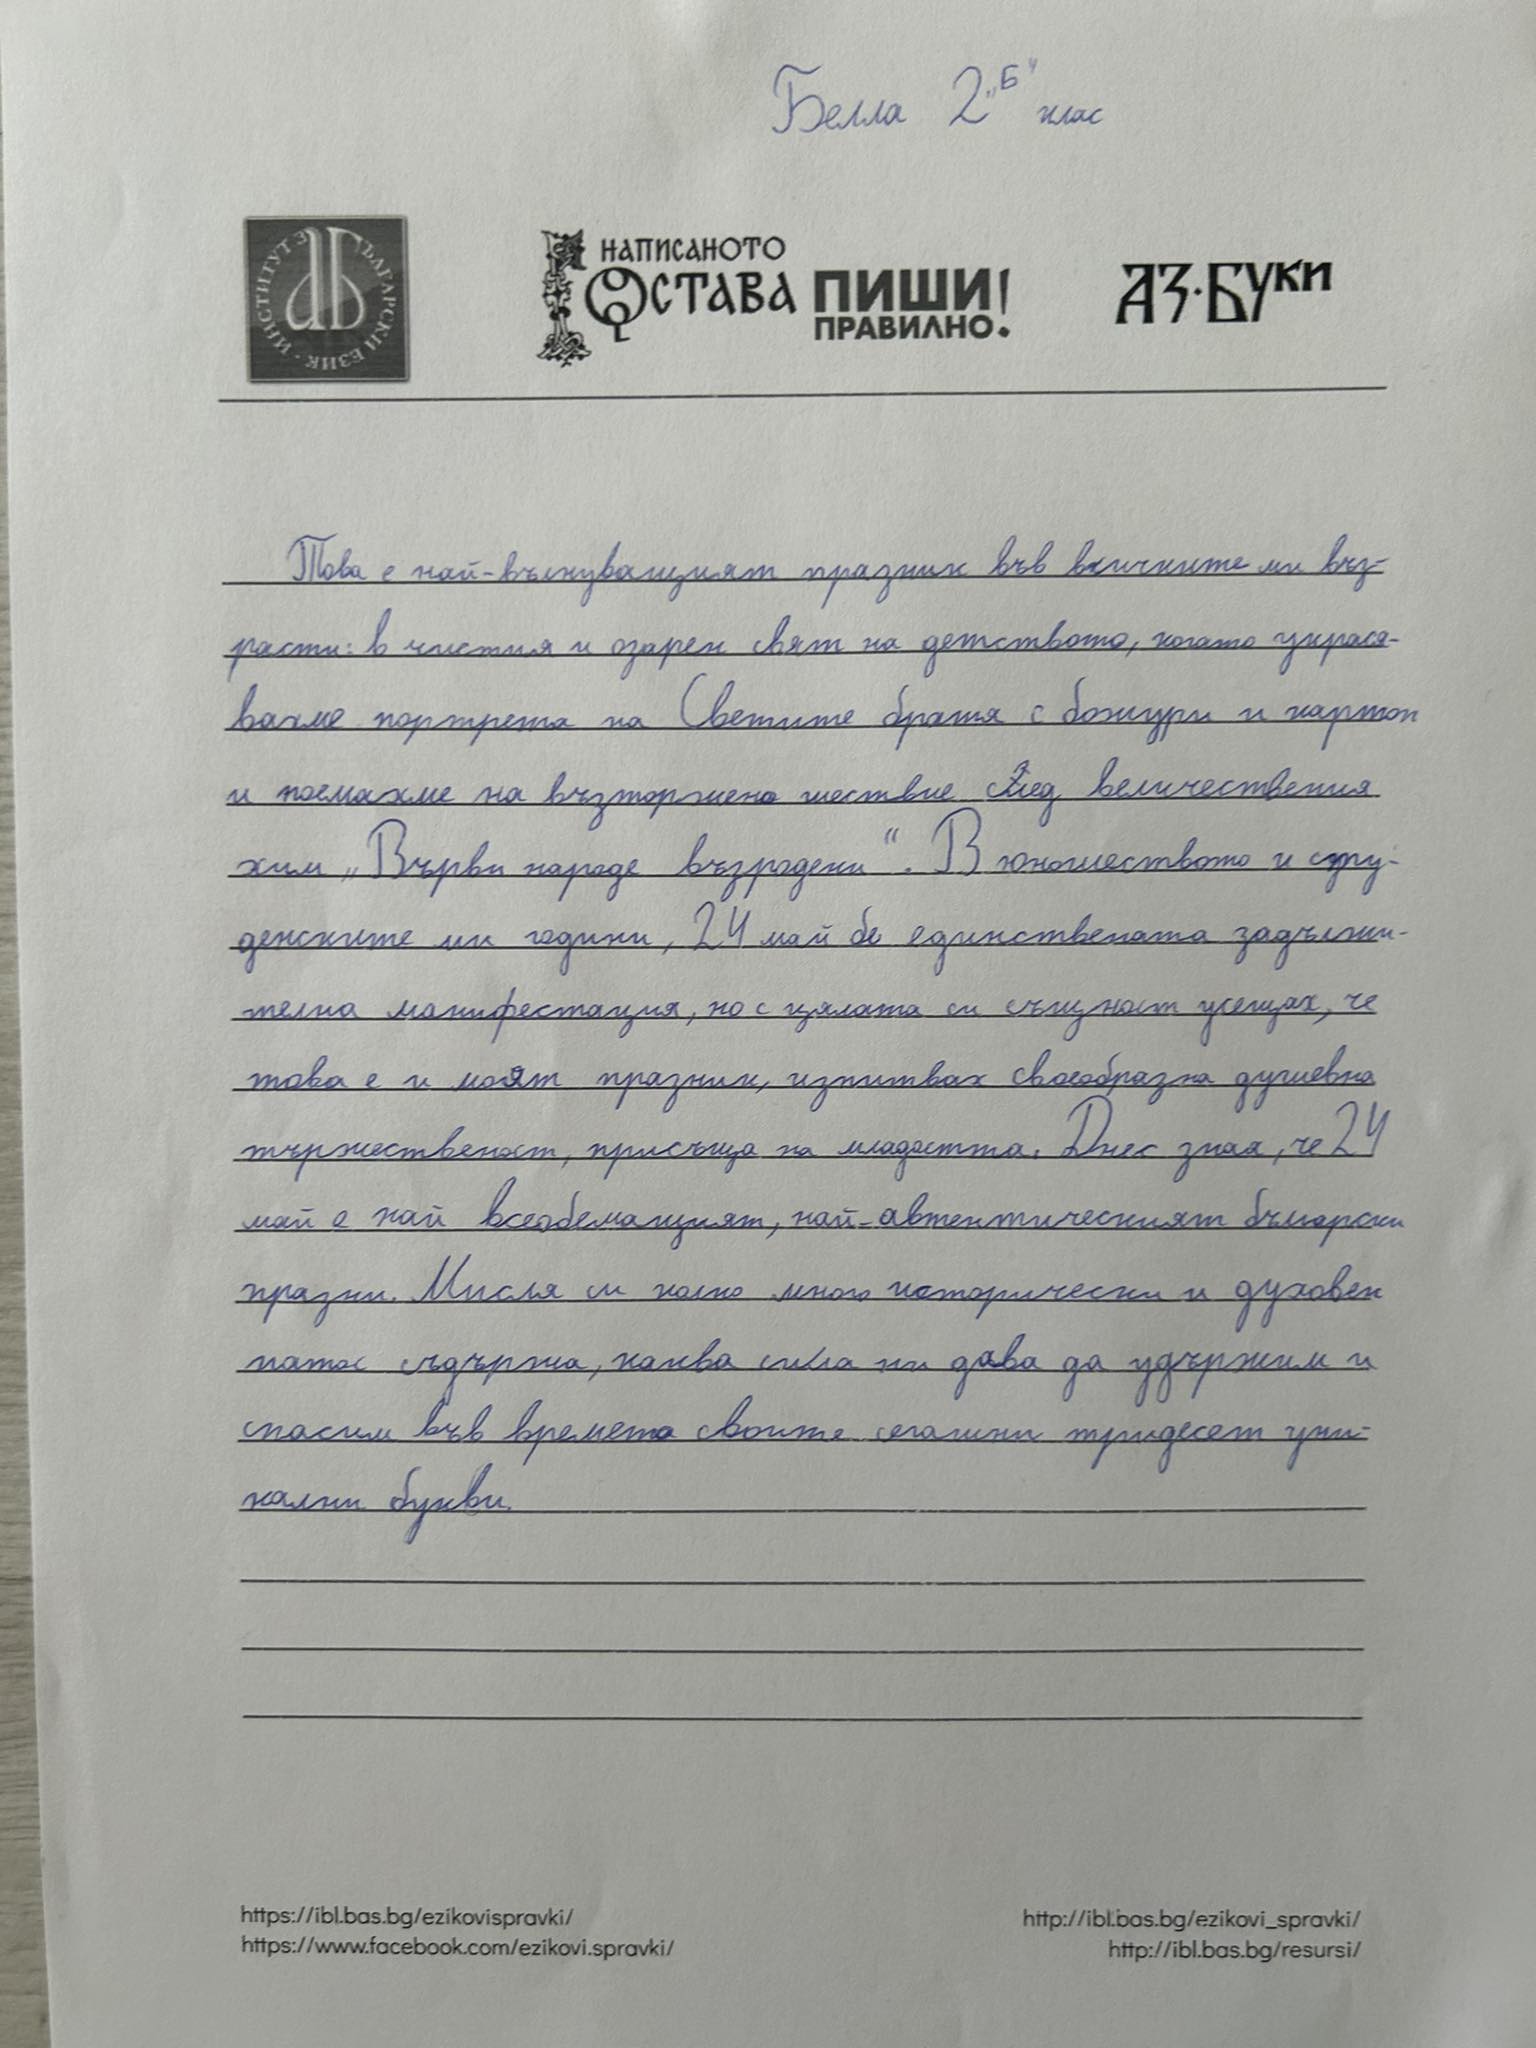 Белла 2 „Б“ клас
ИНСТИТУТ ЗА БЪЛГАРСКИ ЕЗИК
НАПИСАНОТО
ОСТАВА ПИШИ
ПРАВИЛНО!
АЗ·БУКИ
Това е най-вълнуващият празник във всичките ми въз-
расти: в чистия и озарен свят на детството, когато украся-
вахме портрета на Светите братя с божури и картон
и поемахме на възторжено шествие след величествения
хим „Върви народе възродени“. В юношеството и сту-
денските ми години, 24 май бе единствената задължи-
телна манифестация, но с цялата си същност усещах, че
това е и моят празник, изпитвах своеобразна душевна
тържественост, присъща на младостта. Днес зная, че 24
май е най всеобемащият, най-автентическият български
празни. Мисля си колко много исторически и духовен
патос съдържа, каква сила ни дава да удържим и
спасим във времето своите сегашни тридесет уни-
кални букви.
https://ibl.bas.bg/ezikovispravki/
http://ibl.bas.bg/ezikovi_spravki/
https://www.facebook.com/ezikovi.spravki/
http://ibl.bas.bg/resursi/